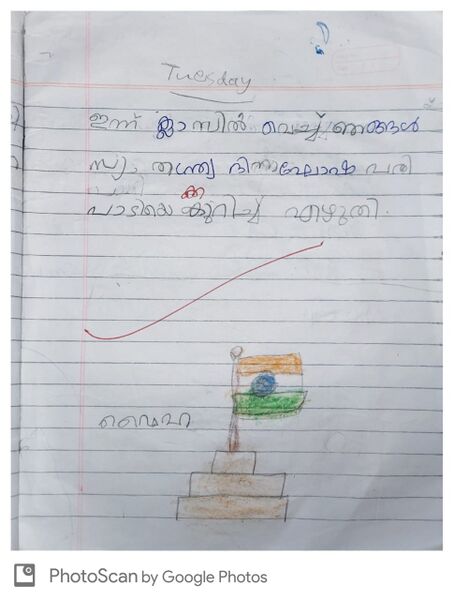 Tuesday
ഇന്ന് ക്ലാസിൽ വെച്ച് ഞങ്ങൾ
സ്വാതന്ത്ര്യ ദിനാഘോഷ പരി
പാടിയെ ക്കുറിച്ച് എഴുതി.
PhotoScan by Google Photos